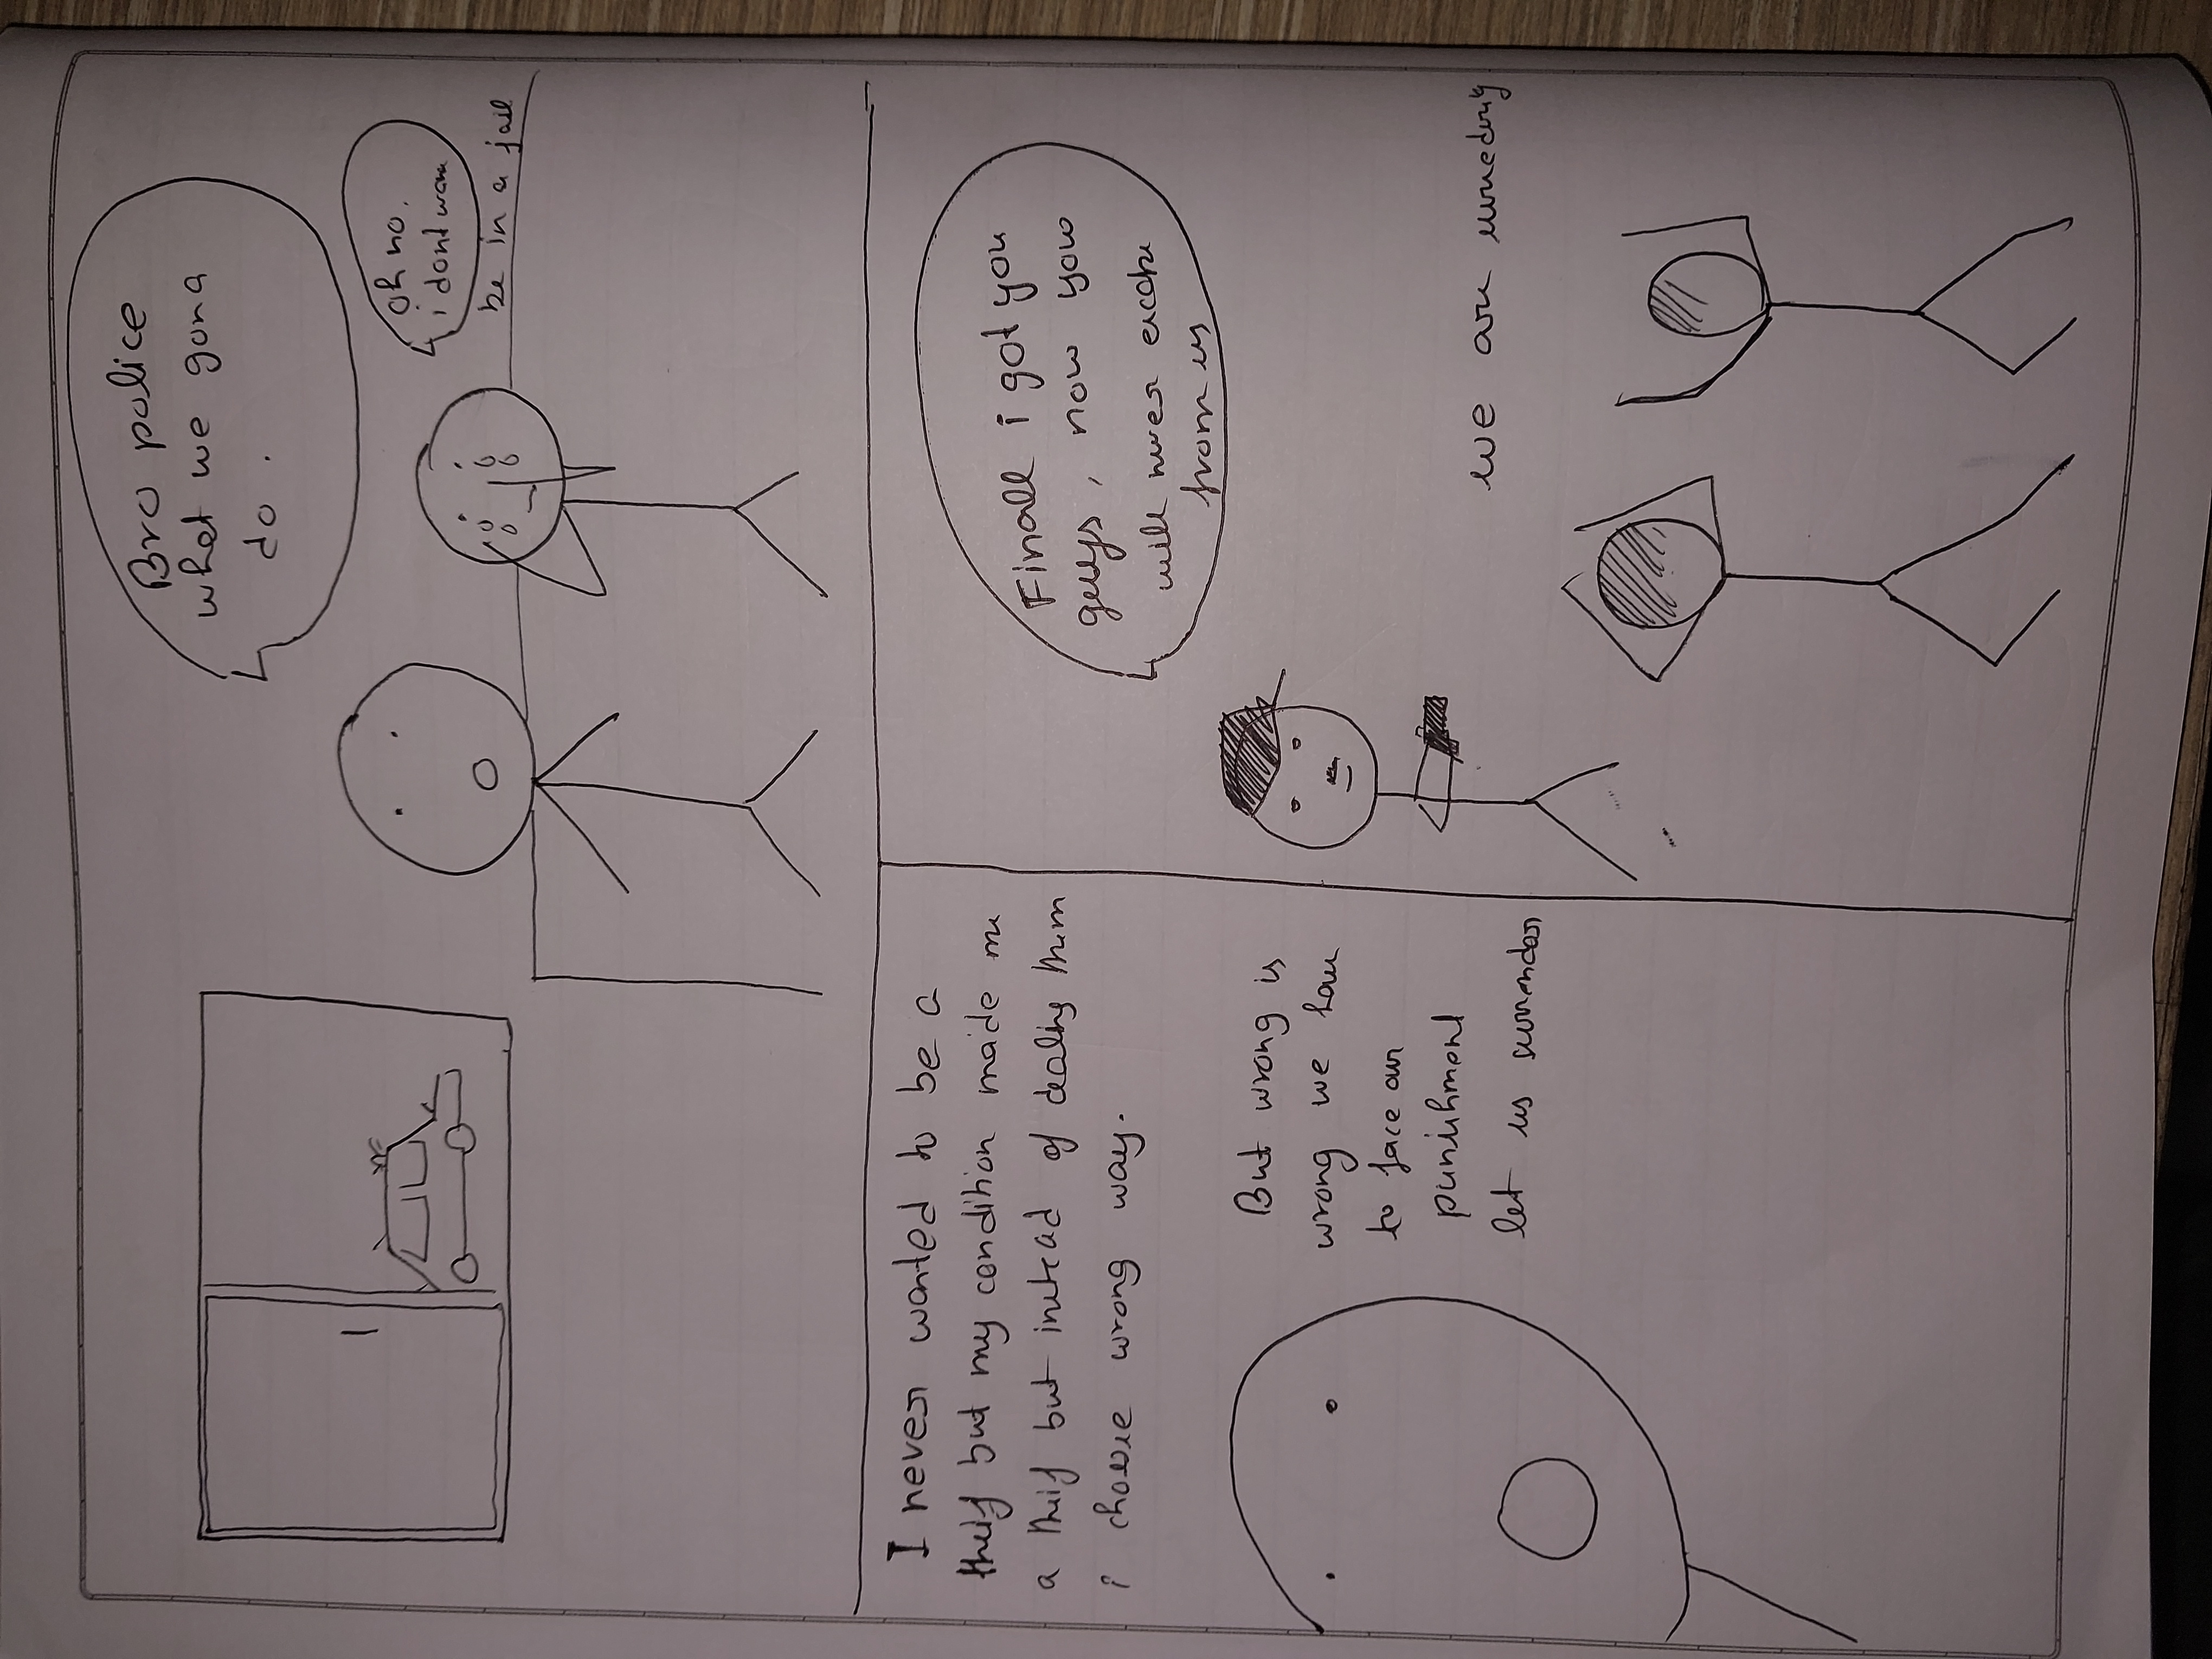 Bro police
what we gona
do .
oh no.
i dont wana
be in a jail
I never wanted to be a
theif but my condition made me
a theif but instead of dealing them
i choose wrong way.
But wrong is
wrong we have
to face our
punishment
let us surrender
Finall i got you
guys, now you
will never
from us
we are